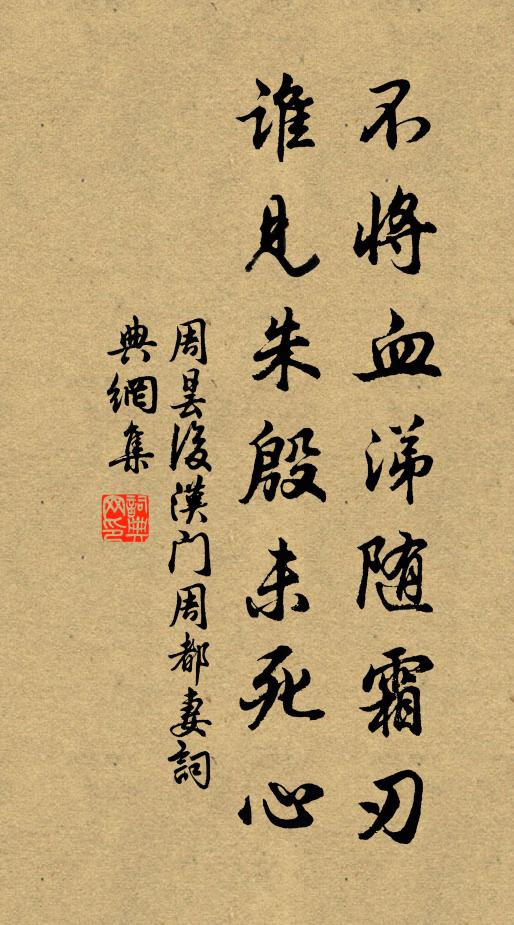 不将血涕随霜刃
谁见朱殷未死心
周昙後漢门周都妻詞
典網集
詞典
网印